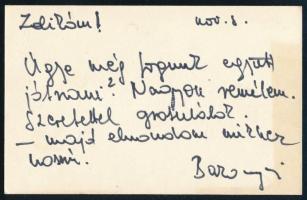 Zolikám! nov. 8.
Ugye még fogunk együtt
játszani? Nagyon remélem.
Szeretettel gratulálok..
– majd elmondom mihez